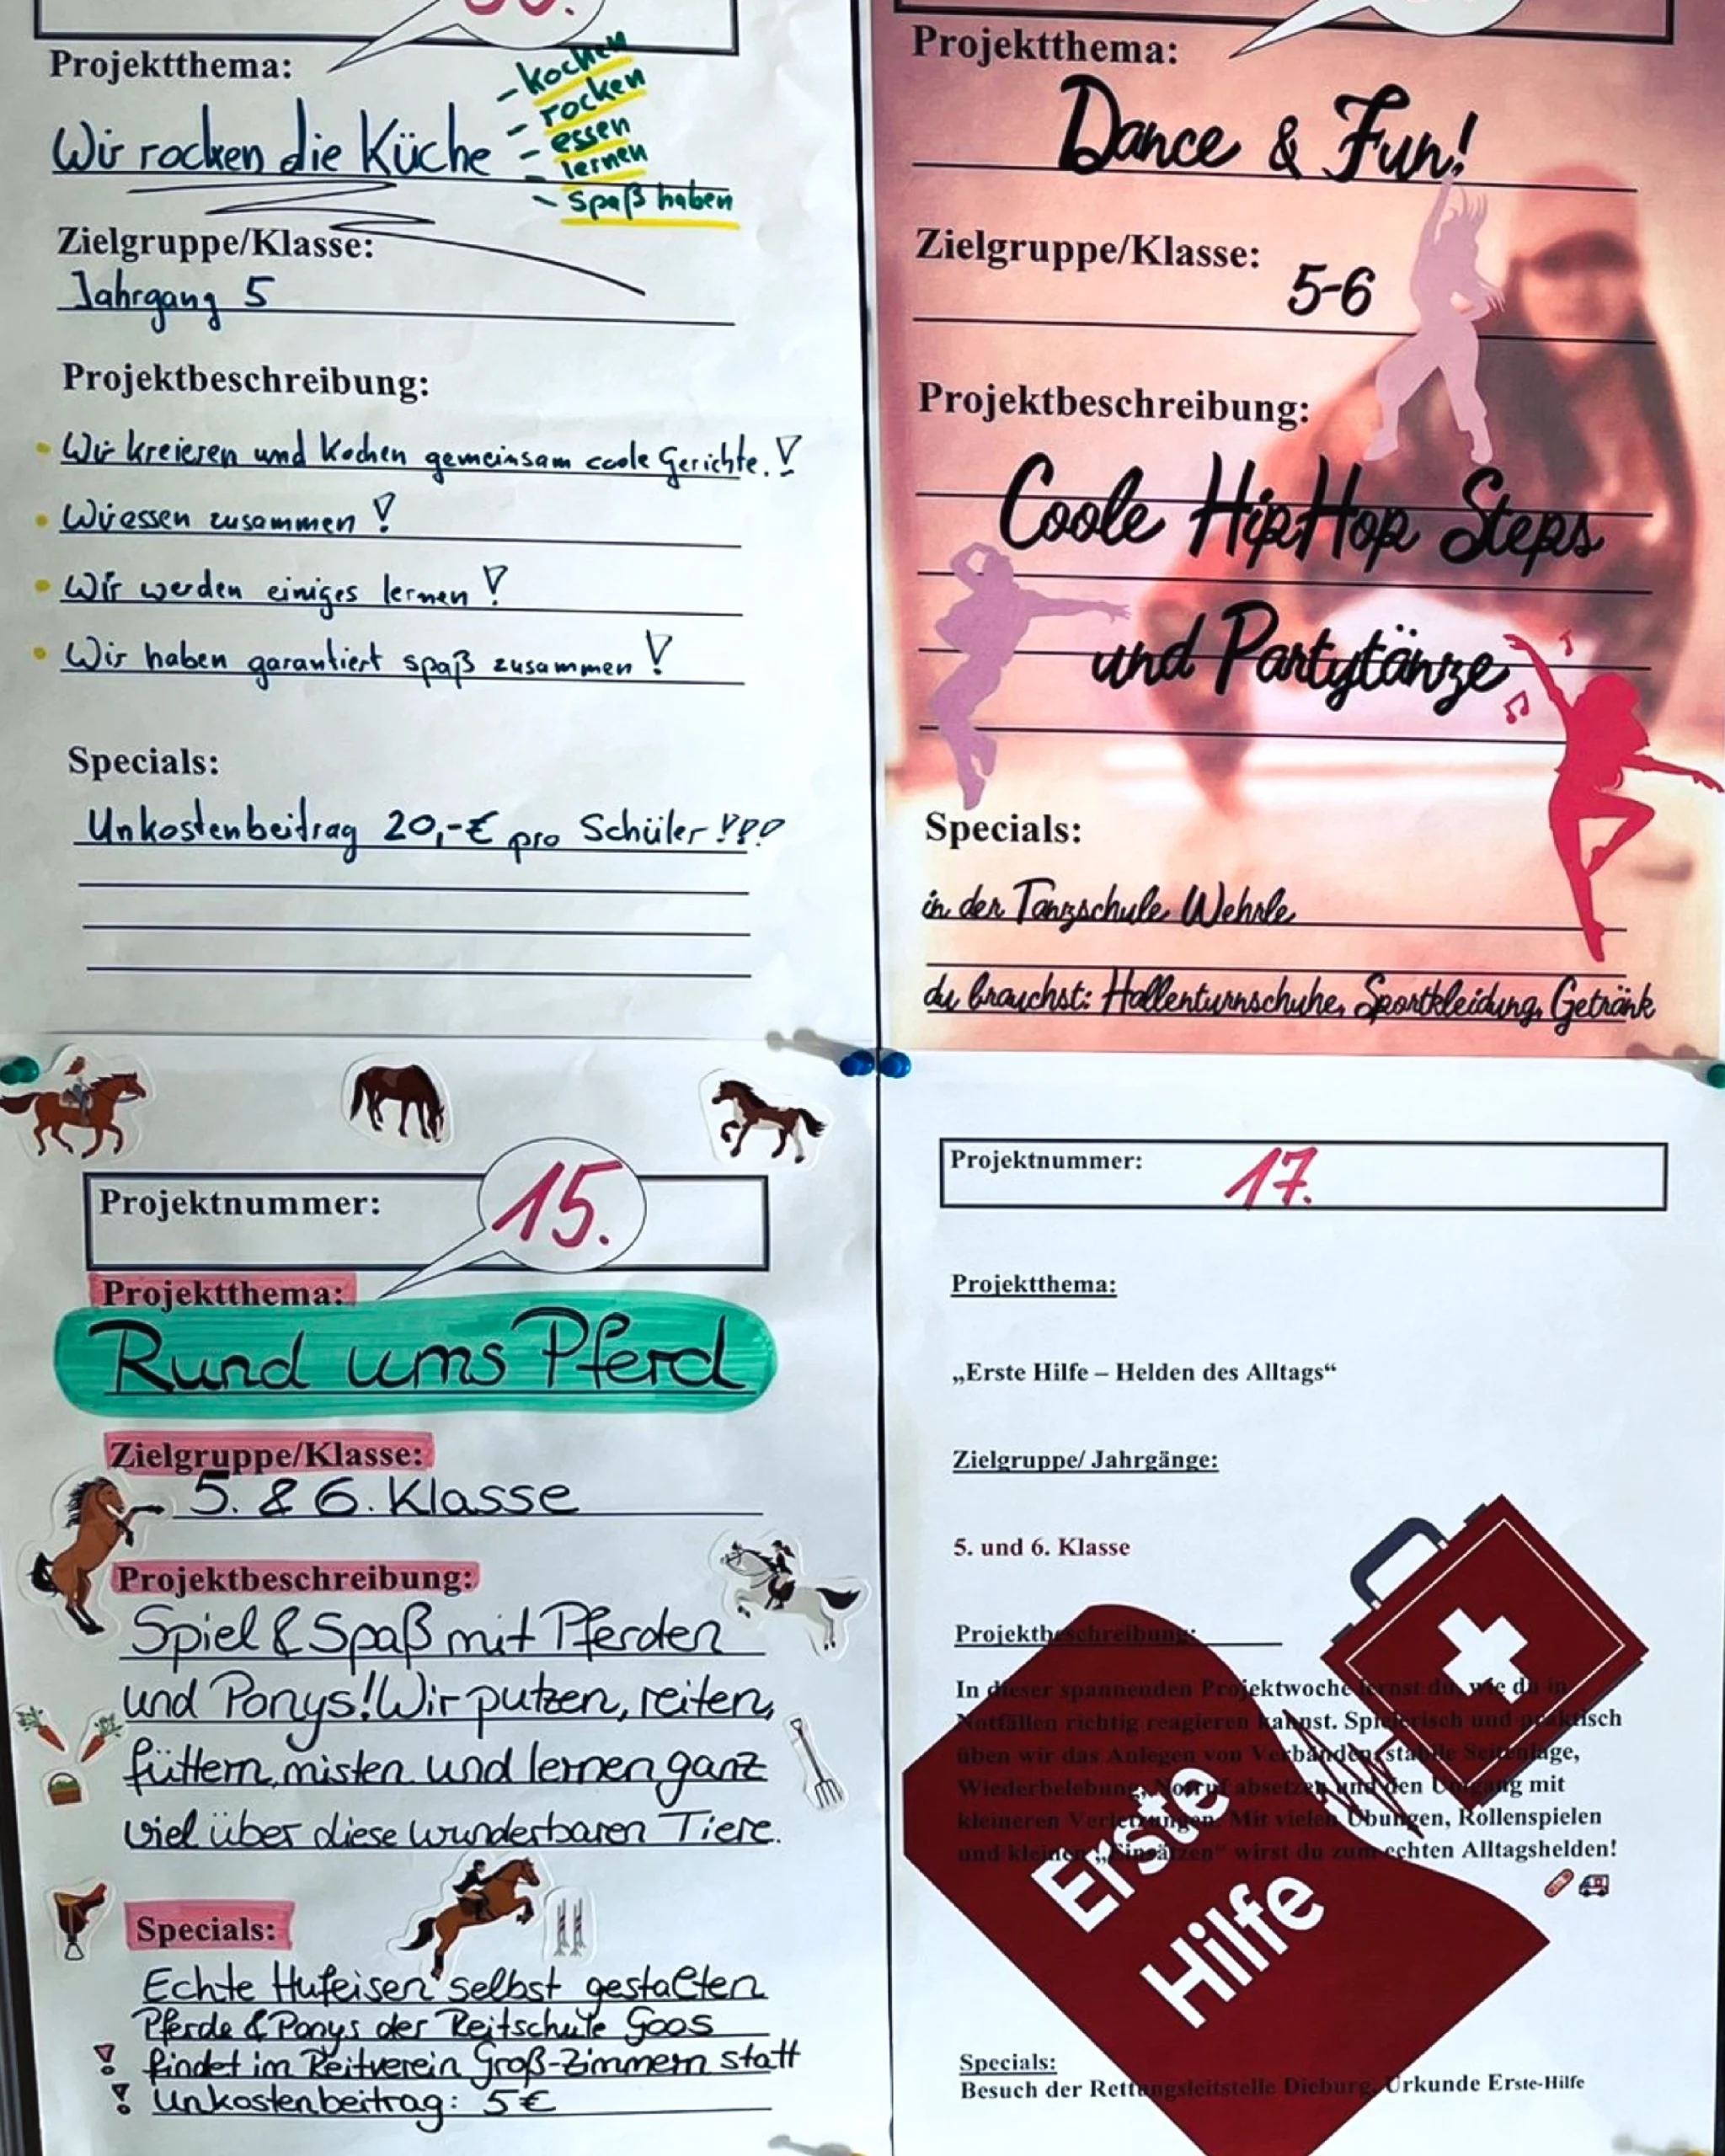 Projektthema:
Wir rocken die Küche
- kochen
- rocken
- essen
- lernen
- Spaß haben
Zielgruppe/Klasse:
Jahrgang 5
Projektbeschreibung:
Wir kreieren und kochen gemeinsam coole Gerichte.!
Wir essen zusammen!
Wir werden einiges lernen!
Wir haben garantiert spaß zusammen!
Specials:
Unkostenbeitrag 20,-€ pro Schüler!!!
Projektthema:
Dance & Fun!
Zielgruppe/Klasse:
5-6
Projektbeschreibung:
Coole HipHop Steps
und Partytänze
Specials:
in der Tanzschule Wehrle
du brauchst: Hallenturnschuhe, Sportkleidung, Getränk
Projektnummer: 15.
Projektthema:
Rund ums Pferd
Zielgruppe/Klasse:
5. & 6. Klasse
Projektbeschreibung:
Spiel & Spaß mit Pferden
und Ponys! Wir putzen, reiten,
füttern, misten und lernen ganz
viel über diese wunderbaren Tiere.
Specials:
Echte Hufeisen selbst gestalten
Pferde & Ponys der Reitschule Goos
! findet im Reitverein Groß-Zimmern statt
! Unkostenbeitrag: 5€
Projektnummer: 17.
Projektthema:
„Erste Hilfe – Helden des Alltags“
Zielgruppe/ Jahrgänge:
5. und 6. Klasse
Projektbeschreibung:
In dieser spannenden Projektwoche lernst du, wie du in
Notfällen richtig reagieren kannst. Spielerisch und praktisch
üben wir das Anlegen von Verbänden, stabile Seitenlage,
Wiederbelebung, Notruf absetzen und den Umgang mit
kleineren Verletzungen. Mit vielen Übungen, Rollenspielen
und kleinen „Einsätzen“ wirst du zum echten Alltagshelden!
Erste
Hilfe
Specials:
Besuch der Rettungsleitstelle Dieburg, Urkunde Erste-Hilfe